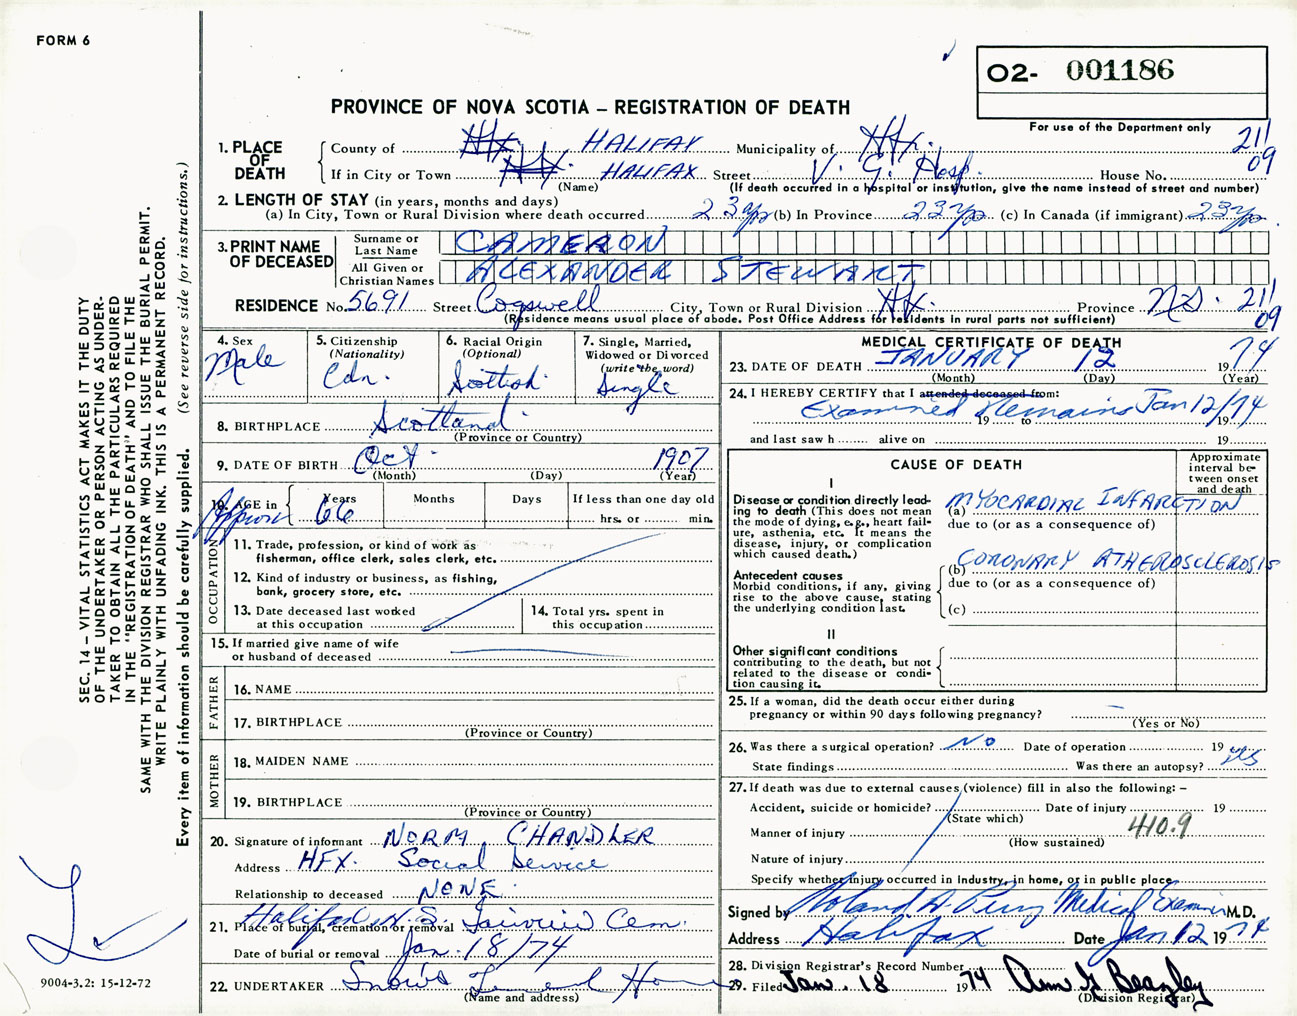 FORM 6
O2- 001186
PROVINCE OF NOVA SCOTIA – REGISTRATION OF DEATH
For use of the Department only
1. PLACE OF DEATH
County of Hfx. HALIFAX Municipality of Hfx.
211
09
If in City or Town Hfx. HALIFAX Street V. G. Hosp. House No.
(Name) (If death occurred in a hospital or institution, give the name instead of street and number)
2. LENGTH OF STAY (in years, months and days)
(a) In City, Town or Rural Division where death occurred 23 yrs (b) In Province 23 yrs (c) In Canada (if immigrant) 23 yrs.
3. PRINT NAME OF DECEASED
Surname or Last Name CAMERON
All Given or Christian Names ALEXANDER STEWART
RESIDENCE No. 5691 Street Cogswell City, Town or Rural Division Hfx. Province N.S. 211
09
(Residence means usual place of abode. Post Office Address for residents in rural parts not sufficient)
4. Sex
Male
5. Citizenship
(Nationality)
Cdn.
6. Racial Origin
(Optional)
Scottish
7. Single, Married,
Widowed or Divorced
(write the word)
Single
8. BIRTHPLACE Scotland
(Province or Country)
9. DATE OF BIRTH Oct. 1907
(Month) (Day) (Year)
10. AGE in
Approx
Years Months Days If less than one day old
66 hrs. or min.
OCCUPATION
11. Trade, profession, or kind of work as
fisherman, office clerk, sales clerk, etc.
12. Kind of industry or business, as fishing,
bank, grocery store, etc.
13. Date deceased last worked
at this occupation
14. Total yrs. spent in
this occupation
15. If married give name of wife
or husband of deceased
FATHER
16. NAME
17. BIRTHPLACE
(Province or Country)
MOTHER
18. MAIDEN NAME
19. BIRTHPLACE
(Province or Country)
20. Signature of informant NORM CHANDLER
Address HFX. Social Service
Relationship to deceased NONE.
21. Place of burial, cremation or removal Halifax N.S. Fairview Cem.
Date of burial or removal Jan. 18/74
22. UNDERTAKER Snow's Funeral Home
(Name and address)
MEDICAL CERTIFICATE OF DEATH
23. DATE OF DEATH JANUARY 12 1974
(Month) (Day) (Year)
24. I HEREBY CERTIFY that I attended deceased from:
Examined Remains Jan 12/74
19 to 19
and last saw h alive on 19
CAUSE OF DEATH
Approximate
interval be-
tween onset
and death
I
Disease or condition directly lead-
ing to death (This does not mean
the mode of dying, e.g., heart fail-
ure, asthenia, etc. It means the
disease, injury, or complication
which caused death.)
(a) MYOCARDIAL INFARCTION
due to (or as a consequence of)
(b) CORONARY ATHEROSCLEROSIS
due to (or as a consequence of)
(c)
Antecedent causes
Morbid conditions, if any, giving
rise to the above cause, stating
the underlying condition last.
II
Other significant conditions
contributing to the death, but not
related to the disease or condi-
tion causing it.
25. If a woman, did the death occur either during
pregnancy or within 90 days following pregnancy?
(Yes or No)
26. Was there a surgical operation? NO Date of operation 19
State findings Was there an autopsy? yes
27. If death was due to external causes (violence) fill in also the following: –
Accident, suicide or homicide? Date of injury 19
(State which)
Manner of injury 410.9
(How sustained)
Nature of injury
Specify whether injury occurred in Industry, in home, or in public place
Signed by Roland A. Perry Medical Examiner M.D.
Address Halifax Date Jan 12 1974
28. Division Registrar's Record Number
29. Filed Jan. 18 1974 Ann G Beazley
(Division Registrar)
SEC. 14 – VITAL STATISTICS ACT MAKES IT THE DUTY
OF THE UNDERTAKER OR PERSON ACTING AS UNDER-
TAKER TO OBTAIN ALL THE PARTICULARS REQUIRED
IN THE "REGISTRATION OF DEATH" AND TO FILE THE
SAME WITH THE DIVISION REGISTRAR WHO SHALL ISSUE THE BURIAL PERMIT.
WRITE PLAINLY WITH UNFADING INK. THIS IS A PERMANENT RECORD.
Every item of information should be carefully supplied. (See reverse side for instructions.)
9004-3.2: 15-12-72